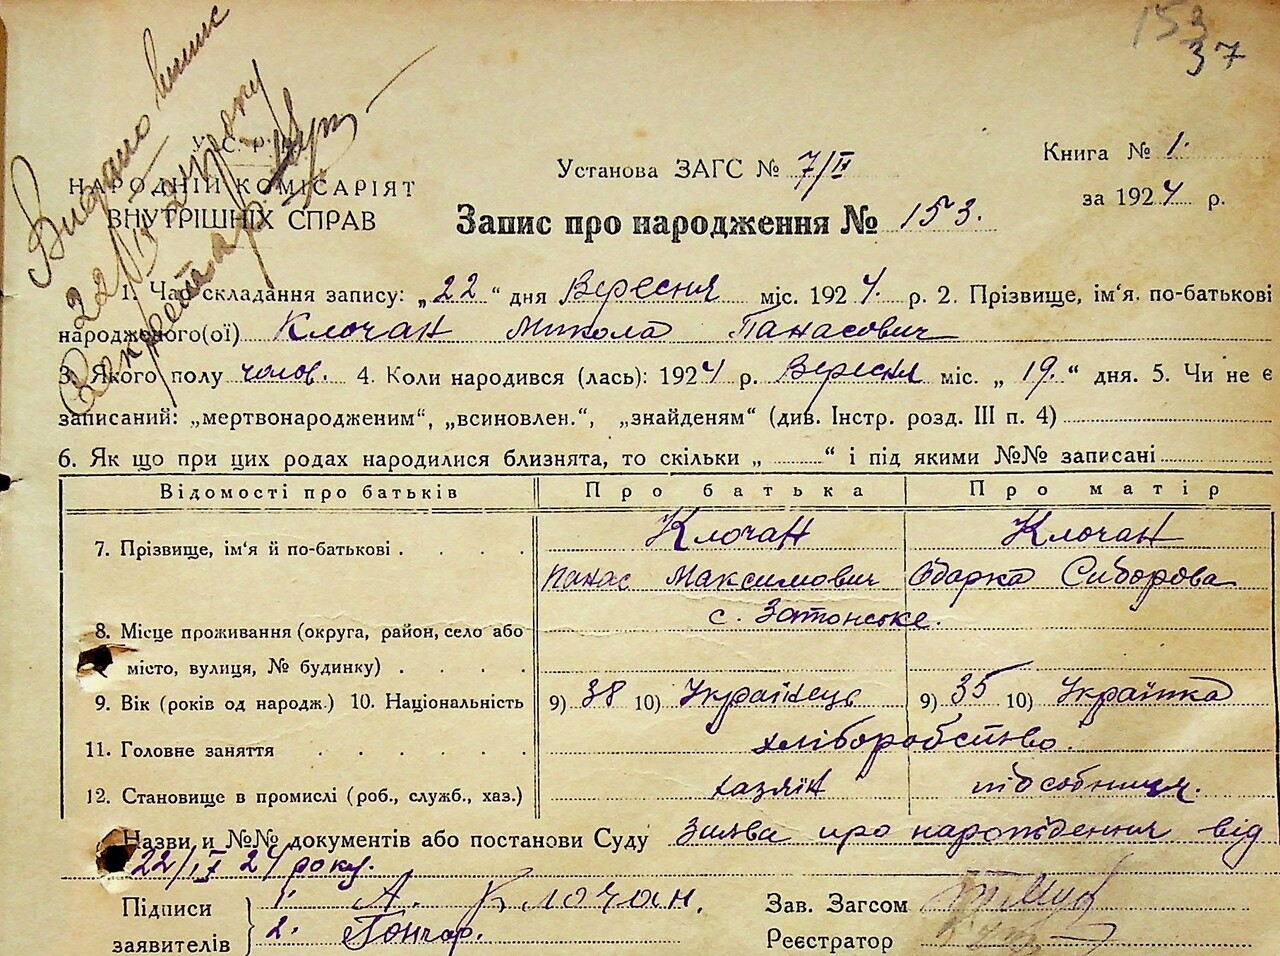 153
37
Видано випис
22/IX 24 року
Секретар
У. С. Р. Р.
НАРОДНІЙ КОМІСАРІЯТ
ВНУТРІШНІХ СПРАВ
Установа ЗАГС № 7/II
Книга № 1.
за 1924 р.
Запис про народження № 153.
1. Час складання запису: „22“ дня Вересня міс. 1924. р. 2. Прізвище, ім'я, по-батькові
народженого(ої) Клочан Микола Панасович
3. Якого полу чолов. 4. Коли народився (лась): 1924 р. Вересня міс. „19.“ дня. 5. Чи не є
записаний: „мертвонародженим“, „всиновлен.“, „знайденям“ (див. Інстр. розд. III п. 4)
6. Як що при цих родах народилися близнята, то скільки „ “ і під якими №№ записані
Відомості про батьків Про батька Про матір
7. Прізвище, ім'я й по-батькові . . . . Клочан Клочан
Панас Максимович Одарка Сиворова
с. Затонське.
8. Місце проживання (округа, район, село або
місто, вулиця, № будинку) . . . .
9. Вік (років од народж.) 10. Національність 9) 38 10) Українець 9) 35 10) Українка
11. Головне заняття . . . . . . хліборобство.
12. Становище в промислі (роб., служб., хаз.) хазяїн підсобниця.
Назви и №№ документів або постанови Суду Заява про народження від
22/IX 24 року.
Підписи
заявителів
1. А. Клочан.
2. Гончар.
Зав. Загсом
Реєстратор